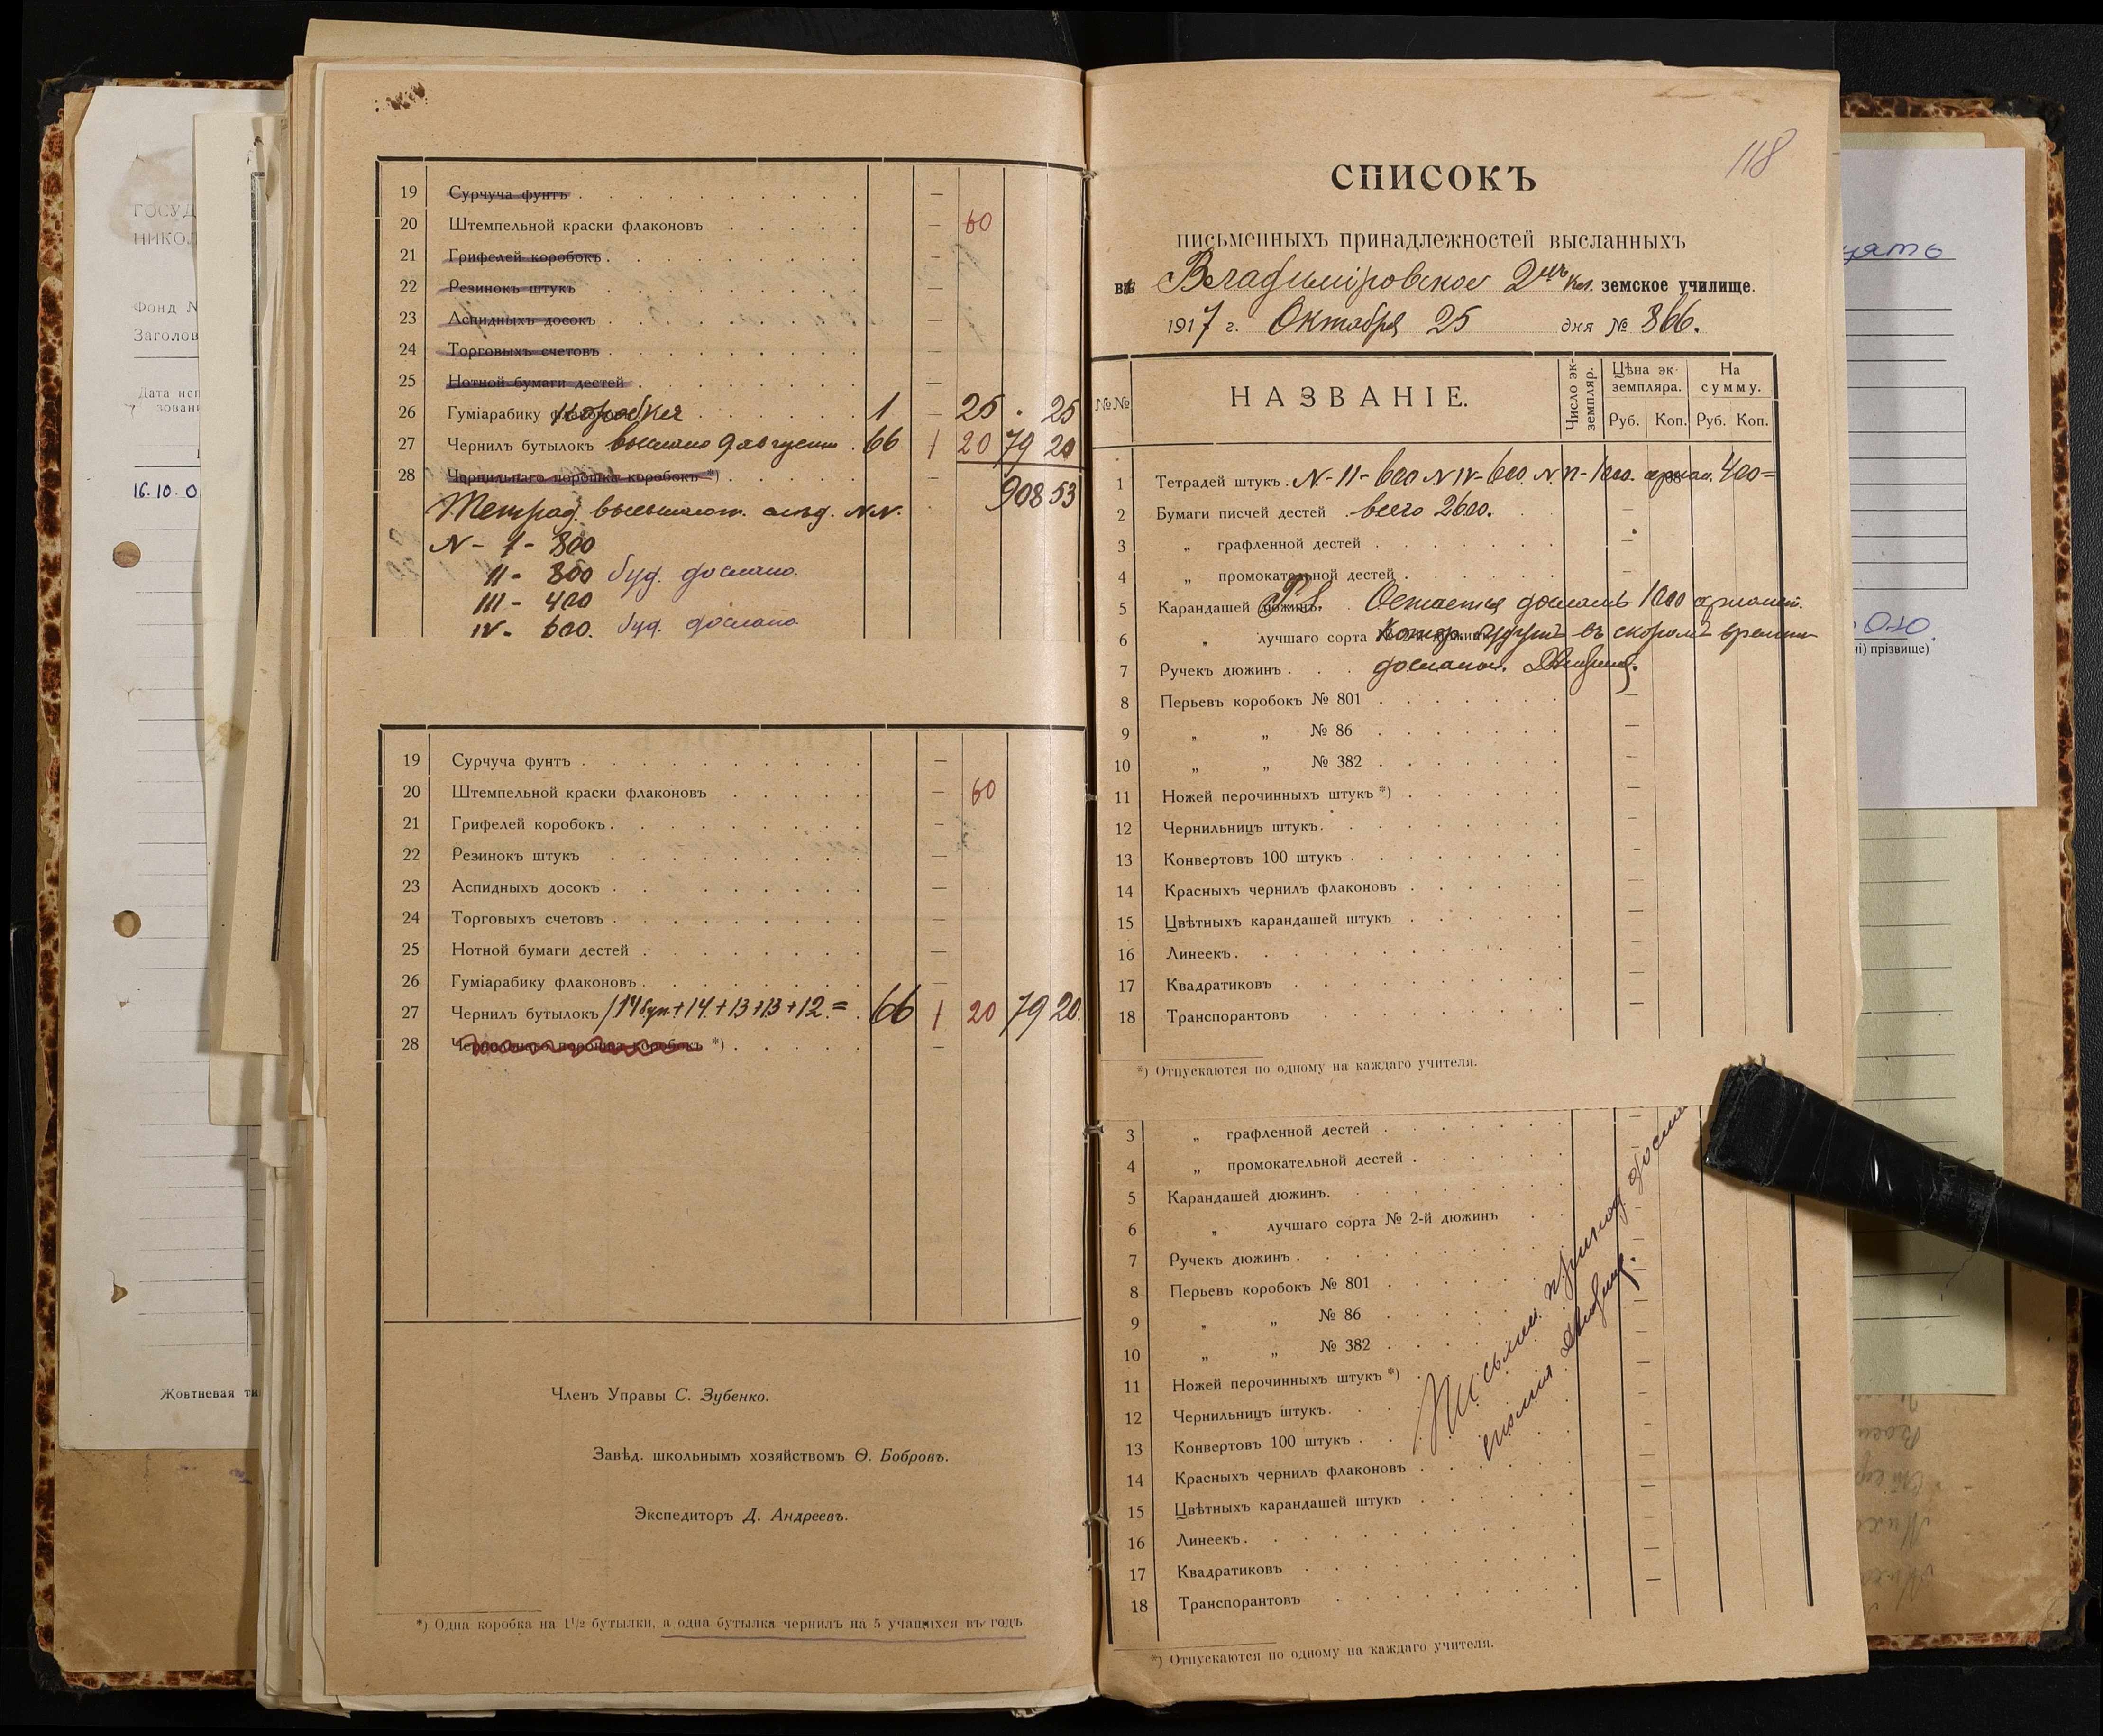 ГОСУД
НИКОЛ
Фонд N
Заголов
Дата исп
зовані
16.10.0
Жовтневая ти
19 Сурчуча фунтъ —
20 Штемпельной краски флаконовъ — 60
21 Грифелей коробокъ —
22 Резинокъ штукъ —
23 Аспидныхъ досокъ —
24 Торговыхъ счетовъ —
25 Нотной бумаги дестей —
26 Гуміарабику коробка 1 — 25 . 25
27 Чернилъ бутылокъ выслано 9 августа 66 1 20 79 20
28 Чернильнаго порошка коробокъ *) — 908 53
Тетрад. высылают. слѣд. NN.
N - I - 800
II - 800 буд. дослано.
III - 400
IV - 600. буд. дослано.
19 Сурчуча фунтъ —
20 Штемпельной краски флаконовъ — 60
21 Грифелей коробокъ —
22 Резинокъ штукъ —
23 Аспидныхъ досокъ —
24 Торговыхъ счетовъ —
25 Нотной бумаги дестей —
26 Гуміарабику флаконовъ —
27 Чернилъ бутылокъ /14 бут.+14.+13+13+12.= 66 1 20 79 20.
28 Чернильнаго порошка коробокъ *) —
Членъ Управы С. Зубенко.
Завѣд. школьнымъ хозяйствомъ Ѳ. Бобровъ.
Экспедиторъ Д. Андреевъ.
*) Одна коробка на 1½ бутылки, а одна бутылка чернилъ на 5 учащихся въ годъ.
118
СПИСОКЪ
письменныхъ принадлежностей высланныхъ
въ Владиміровское 2хъ кл. земское училище.
1917 г. Октября 25 дня № 866.
№№ НАЗВАНІЕ. Число экземпляр. Цѣна экземпляра. На сумму.
Руб. Коп. Руб. Коп.
1 Тетрадей штукъ N-II-600 N IV-600. 400=
2 Бумаги писчей дестей всего 2600. —
3 „ графленной дестей —
4 „ промокательной дестей —
5 Карандашей дюжинъ. P.S. Остается дослать 1000
6 „ лучшаго сорта будутъ въ скоромъ времени
7 Ручекъ дюжинъ
8 Перьевъ коробокъ № 801 —
9 „ „ № 86 —
10 „ „ № 382 —
11 Ножей перочинныхъ штукъ *) —
12 Чернильницъ штукъ —
13 Конвертовъ 100 штукъ —
14 Красныхъ чернилъ флаконовъ —
15 Цвѣтныхъ карандашей штукъ —
16 Линеекъ —
17 Квадратиковъ —
18 Транспорантовъ —
*) Отпускаются по одному на каждаго учителя.
3 „ графленной дестей
4 „ промокательной дестей
5 Карандашей дюжинъ.
6 „ лучшаго сорта № 2-й дюжинъ
7 Ручекъ дюжинъ
8 Перьевъ коробокъ № 801
9 „ „ № 86
10 „ „ № 382
11 Ножей перочинныхъ штукъ *)
12 Чернильницъ штукъ.
13 Конвертовъ 100 штукъ
14 Красныхъ чернилъ флаконовъ
15 Цвѣтныхъ карандашей штукъ
16 Линеекъ
17 Квадратиковъ
18 Транспорантовъ
*) Отпускаются по одному на каждаго учителя.
Письмен.
ні) прізвище)